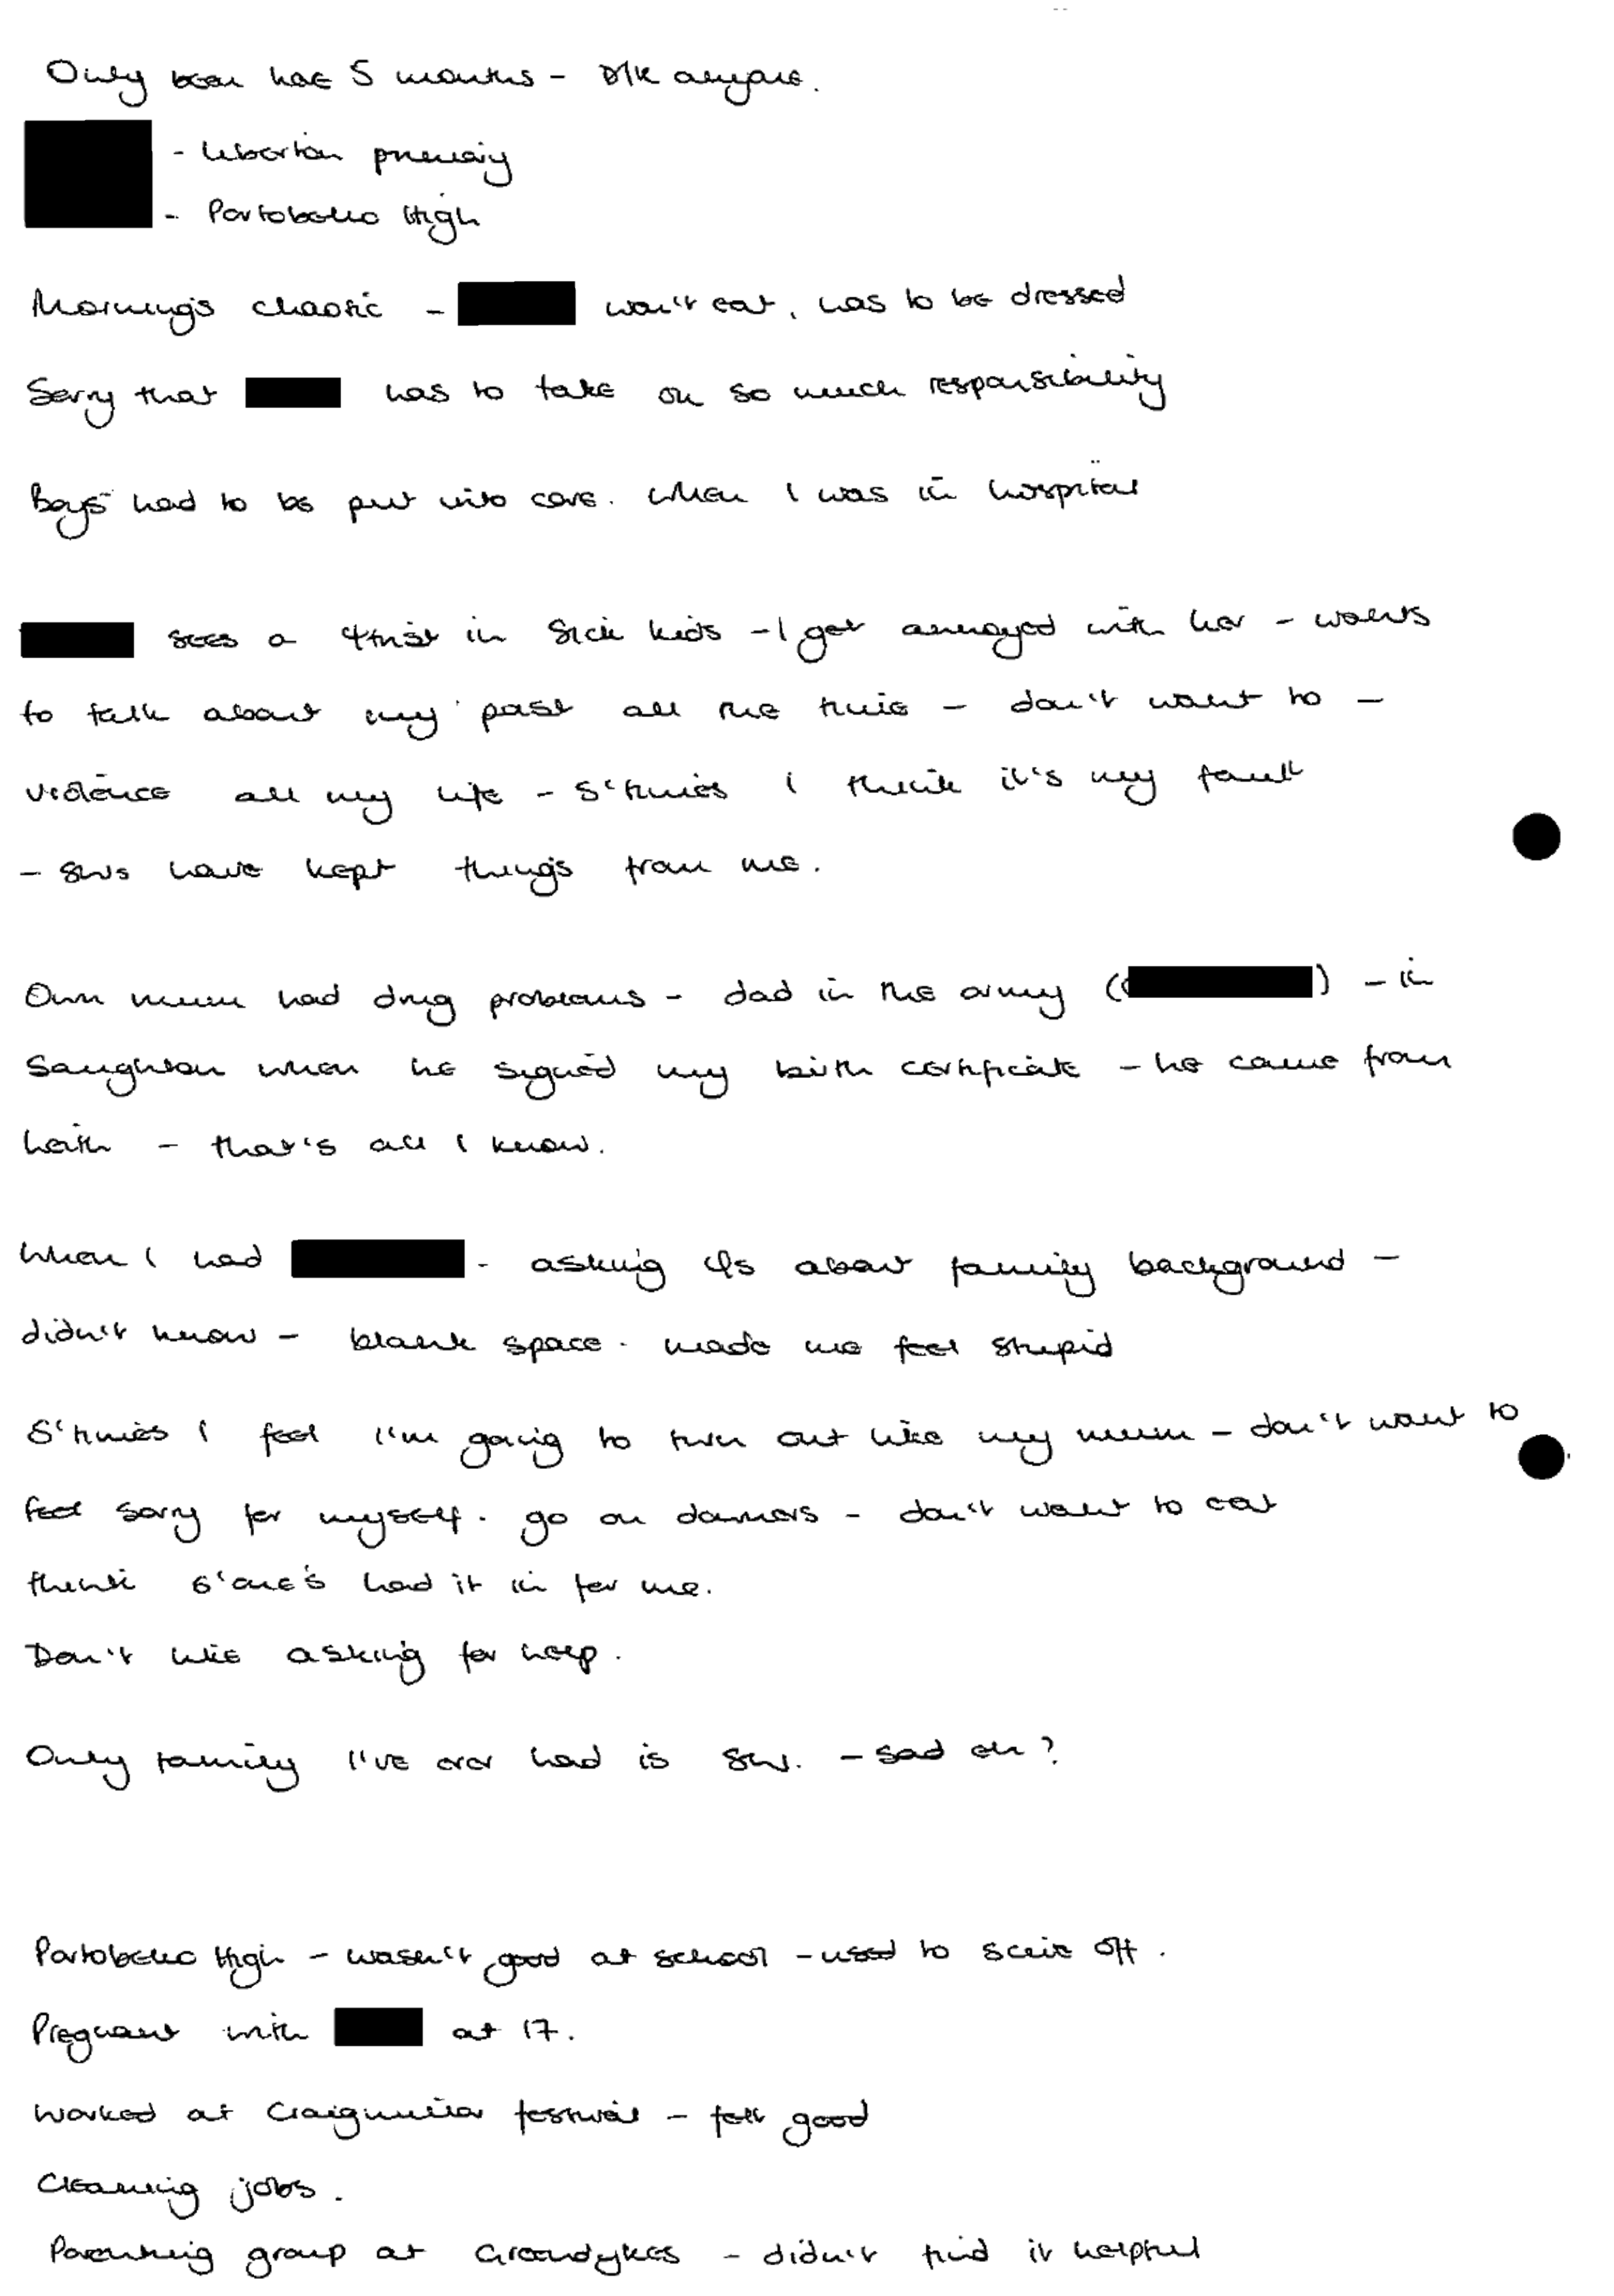 Only been here 5 months - D/K anyone.
- Liberton primary
- Portobello High
Mornings chaotic - won't eat, has to be dressed
Sorry that has to take on so much responsibility
Boys had to be put into care. When I was in hospital
sees a in Sick Kids - I get annoyed with her - wants
to talk about my past all the time - don't want to -
violence all my life - S'times I think it's my fault
- SWs have kept things from me.
Own mum had drug problems - dad in the army ( ) - in
Saughton when he signed my birth certificate - he came from
Leith - that's all I know.
When I had - asking Qs about family background -
didn't know - blank space. made me feel stupid
S'times I feel I'm going to turn out like my mum - don't want to
feel sorry for myself. go on downers - don't want to eat
think s'one's had it in for me.
Don't like asking for help.
Only family I've ever had is SW. - sad eh?
Portobello High - wasn't good at school - used to skive off.
Pregnant with at 17.
Worked at Craigmillar festival - felt good
Cleaning jobs.
Parenting group at Greendykes - didn't find it helpful